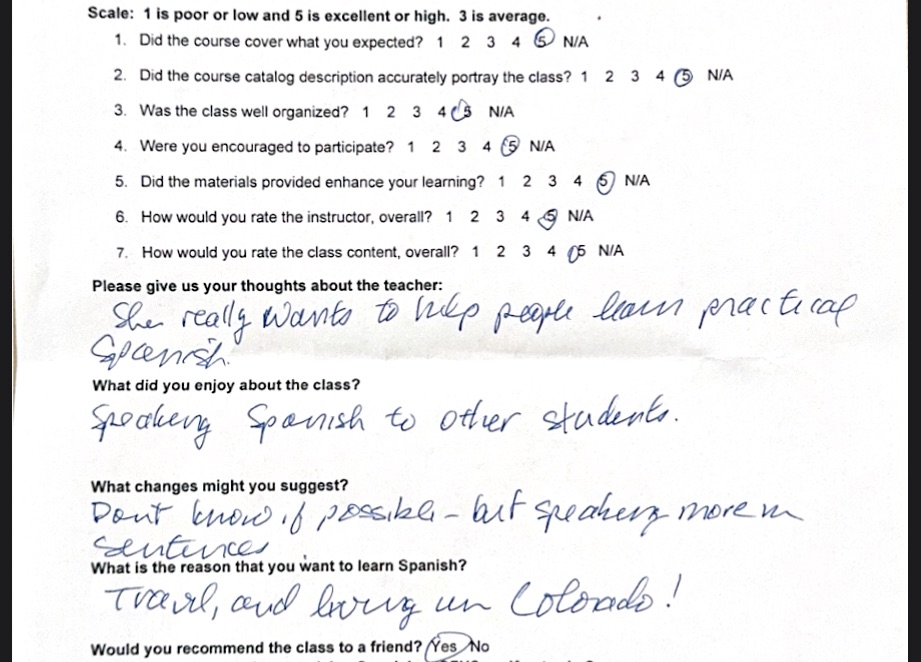 Scale: 1 is poor or low and 5 is excellent or high. 3 is average.
1. Did the course cover what you expected? 1 2 3 4 5 N/A
2. Did the course catalog description accurately portray the class? 1 2 3 4 5 N/A
3. Was the class well organized? 1 2 3 4 5 N/A
4. Were you encouraged to participate? 1 2 3 4 5 N/A
5. Did the materials provided enhance your learning? 1 2 3 4 5 N/A
6. How would you rate the instructor, overall? 1 2 3 4 5 N/A
7. How would you rate the class content, overall? 1 2 3 4 5 N/A
Please give us your thoughts about the teacher:
She really wants to help people learn practical
Spanish.
What did you enjoy about the class?
Speaking Spanish to other students.
What changes might you suggest?
Dont know if possible - but speaking more in
sentences
What is the reason that you want to learn Spanish?
Travel, and living in Colorado!
Would you recommend the class to a friend? Yes No